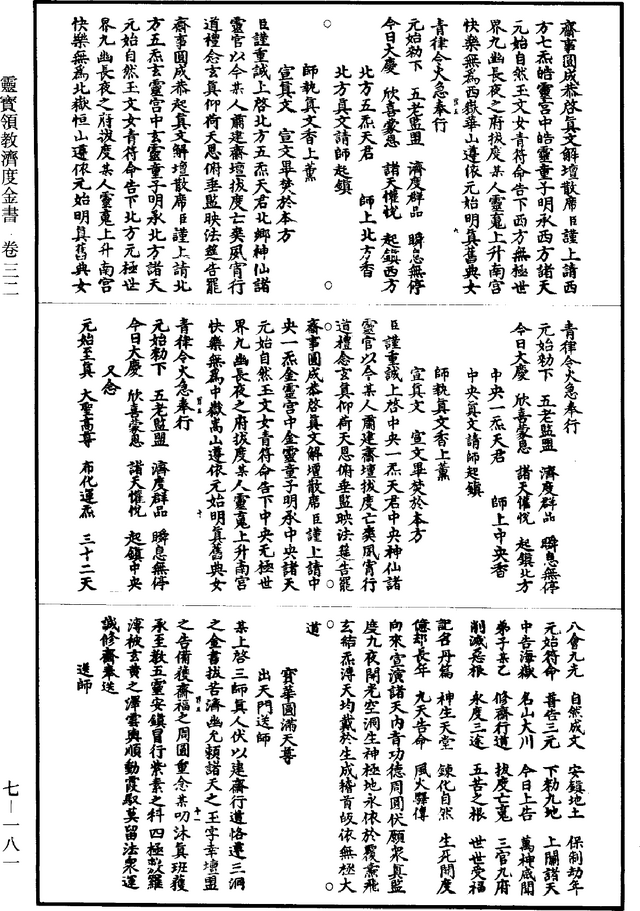 齋事圓成恭啓真文解壇散席臣謹上請西
方七炁皓靈宮中皓靈童子明承西方諸天
元始自然玉文女青符命告下西方無極世
界九幽長夜之府拔度某人靈䰟上升南宮
快樂無為西嶽華山遵依元始明真舊典女
青律令火急奉行
元始勑下　五老監盟　濟度群品　瞬息無停
今日大慶　欣喜蒙恩　諸天懽悅　起鎮西方
北方五炁天君　師上北方香
北方真文請師起鎮
師執真文香上薰
宣真文　宣文畢焚於本方
臣謹重誠上啓北方五炁天君北鄉神仙諸
靈官以今某人肅建齋壇拔度亡爽夙宵行
道禮念玄真仰荷天恩俯垂監映法筵告罷
齋事圓成恭起真文解壇散席臣謹上請北
方五炁玄靈宮中玄靈童子明承北方諸天
元始自然玉文女青符命告下北方無極世
界九幽長夜之府拔度某人靈䰟上升南宮
快樂無為北嶽恒山遵依元始明真舊典女
青律令火急奉行
元始勑下　五老監盟　濟度群品　瞬息無停
今日大慶　欣喜蒙恩　諸天懽悅　起鎮北方
中央一炁天君　師上中央香
中央真文請師起鎮
師執真文香上薰
宣真文　宣文畢焚於本方
臣謹重誠上啓中央一炁天君中央神仙諸
靈官以今某人肅建齋壇拔度亡爽夙宵行
道禮念玄真仰荷天恩俯垂監映法筵告罷
齋事圓成恭啓真文解壇散席臣謹上請中
央一炁金靈宮中金靈童子明承中央諸天
元始自然玉文女青符命告下中央无極世
界九幽長夜之府拔度某人靈䰟上升南宮
快樂無為中嶽嵩山遵依元始明真舊典女
青律令火急奉行
元始勑下　五老監盟　濟度群品　瞬息無停
今日大慶　欣喜蒙恩　諸天懽悅　起鎮中央
又念
元始至真　大聖高尊　布化運炁　三十二天
八會九元　自然成文　安鎮地土　保制劫年
元始符命　普告三元　下勑九地　上關諸天
中告海嶽　名山大川　今日上告　萬神咸聞
弟子某乙　修齋行道　拔度亡䰟　三官九府
削滅惡根　永度三途　五苦之根　世世受福
記名丹篇　神生天堂　鍊化自然　生死開度
億劫長年　九天告命　風火驛傳
向來宣演諸天內音功德周圓伏願眾真監
度九夜開光空洞生神極地永依於覆燾飛
玄結炁溥天均戴於生成稽首皈依無極大
道
寶華圓滿天尊
出天門送師
某上啓三師真人伏以建齋行道恪遵三洞
之金書拔苦濟幽允賴諸天之玉字幸壇盟
之告備獲齋福之周圓重念某叨沐真班獲
承至教五靈安鎮冒行紫素之科四極羅
溥被玄黃之澤雲輿順動霞馭莫留法眾運
誠修齋奉送
送師
靈寶領教濟度金書　卷三二
七—一八一